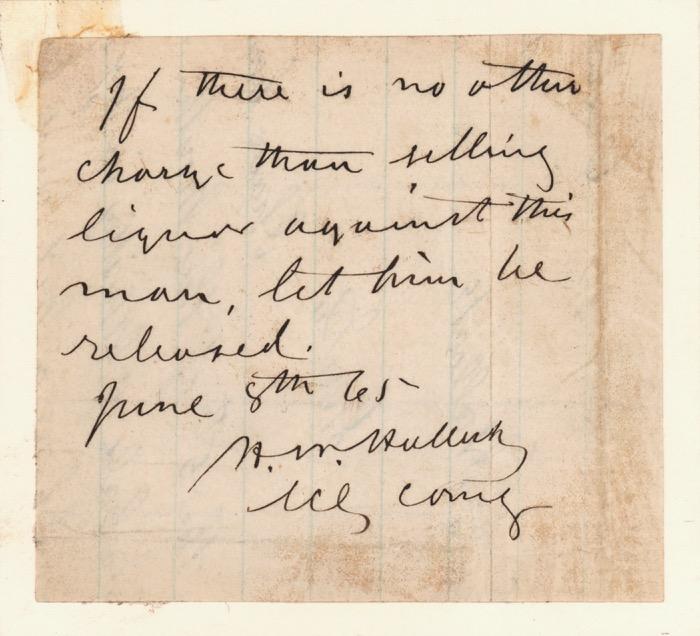 If there is no other
charge than selling
liquor against this
man, let him be
released.
June 8th 65
H. W. Halleck
comg